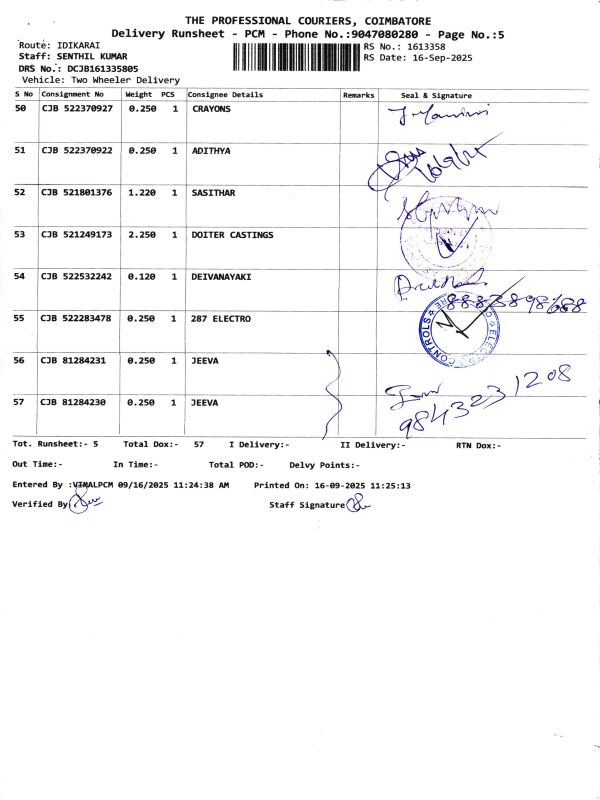 THE PROFESSIONAL COURIERS, COIMBATORE
Delivery Runsheet - PCM - Phone No.:9047080280 - Page No.:5
Route: IDIKARAI RS No.: 1613358
Staff: SENTHIL KUMAR RS Date: 16-Sep-2025
DRS No.: DCJB161335805
Vehicle: Two Wheeler Delivery
S No Consignment No Weight PCS Consignee Details Remarks Seal & Signature
50 CJB 522370927 0.250 1 CRAYONS
51 CJB 522370922 0.250 1 ADITHYA
52 CJB 521801376 1.220 1 SASITHAR
53 CJB 521249173 2.250 1 DOITER CASTINGS
54 CJB 522532242 0.120 1 DEIVANAYAKI
55 CJB 522283478 0.250 1 287 ELECTRO
ELECTRO CONTROLS
56 CJB 81284231 0.250 1 JEEVA
57 CJB 81284230 0.250 1 JEEVA
9843231208
Tot. Runsheet:- 5 Total Dox:- 57 I Delivery:- II Delivery:- RTN Dox:-
Out Time:- In Time:- Total POD:- Delvy Points:-
Entered By :VIMALPCM 09/16/2025 11:24:38 AM Printed On: 16-09-2025 11:25:13
Verified By Staff Signature